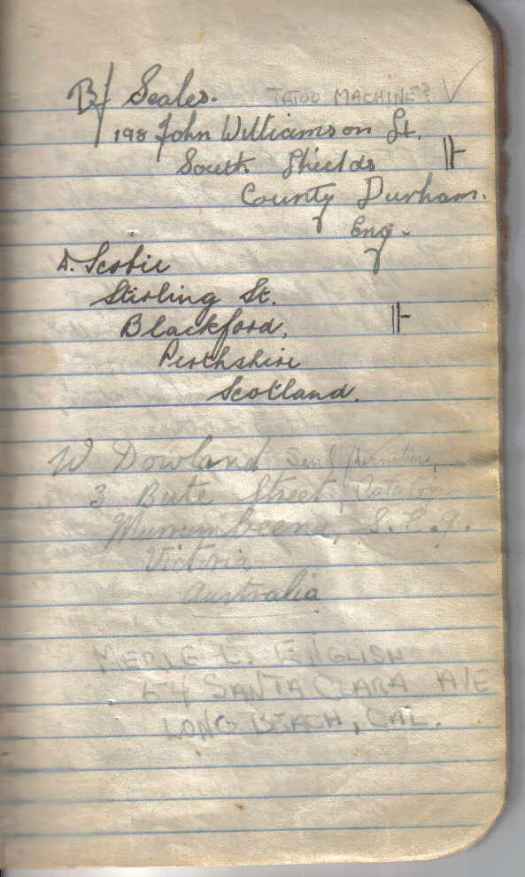 B/ Scales. TATOO MACHINE? ✓
198 John Williamson St.
South Shields
County Durham.
Eng.
D. Scobie
Stirling St.
Blackford,
Perthshire
Scotland.
W Dowland Send
3 Bute Street,
Murrumbeena, S.E.9.
Victoria
Australia
MERLE L. ENGLISH
64 SANTA CLARA AVE
LONG BEACH, CAL.